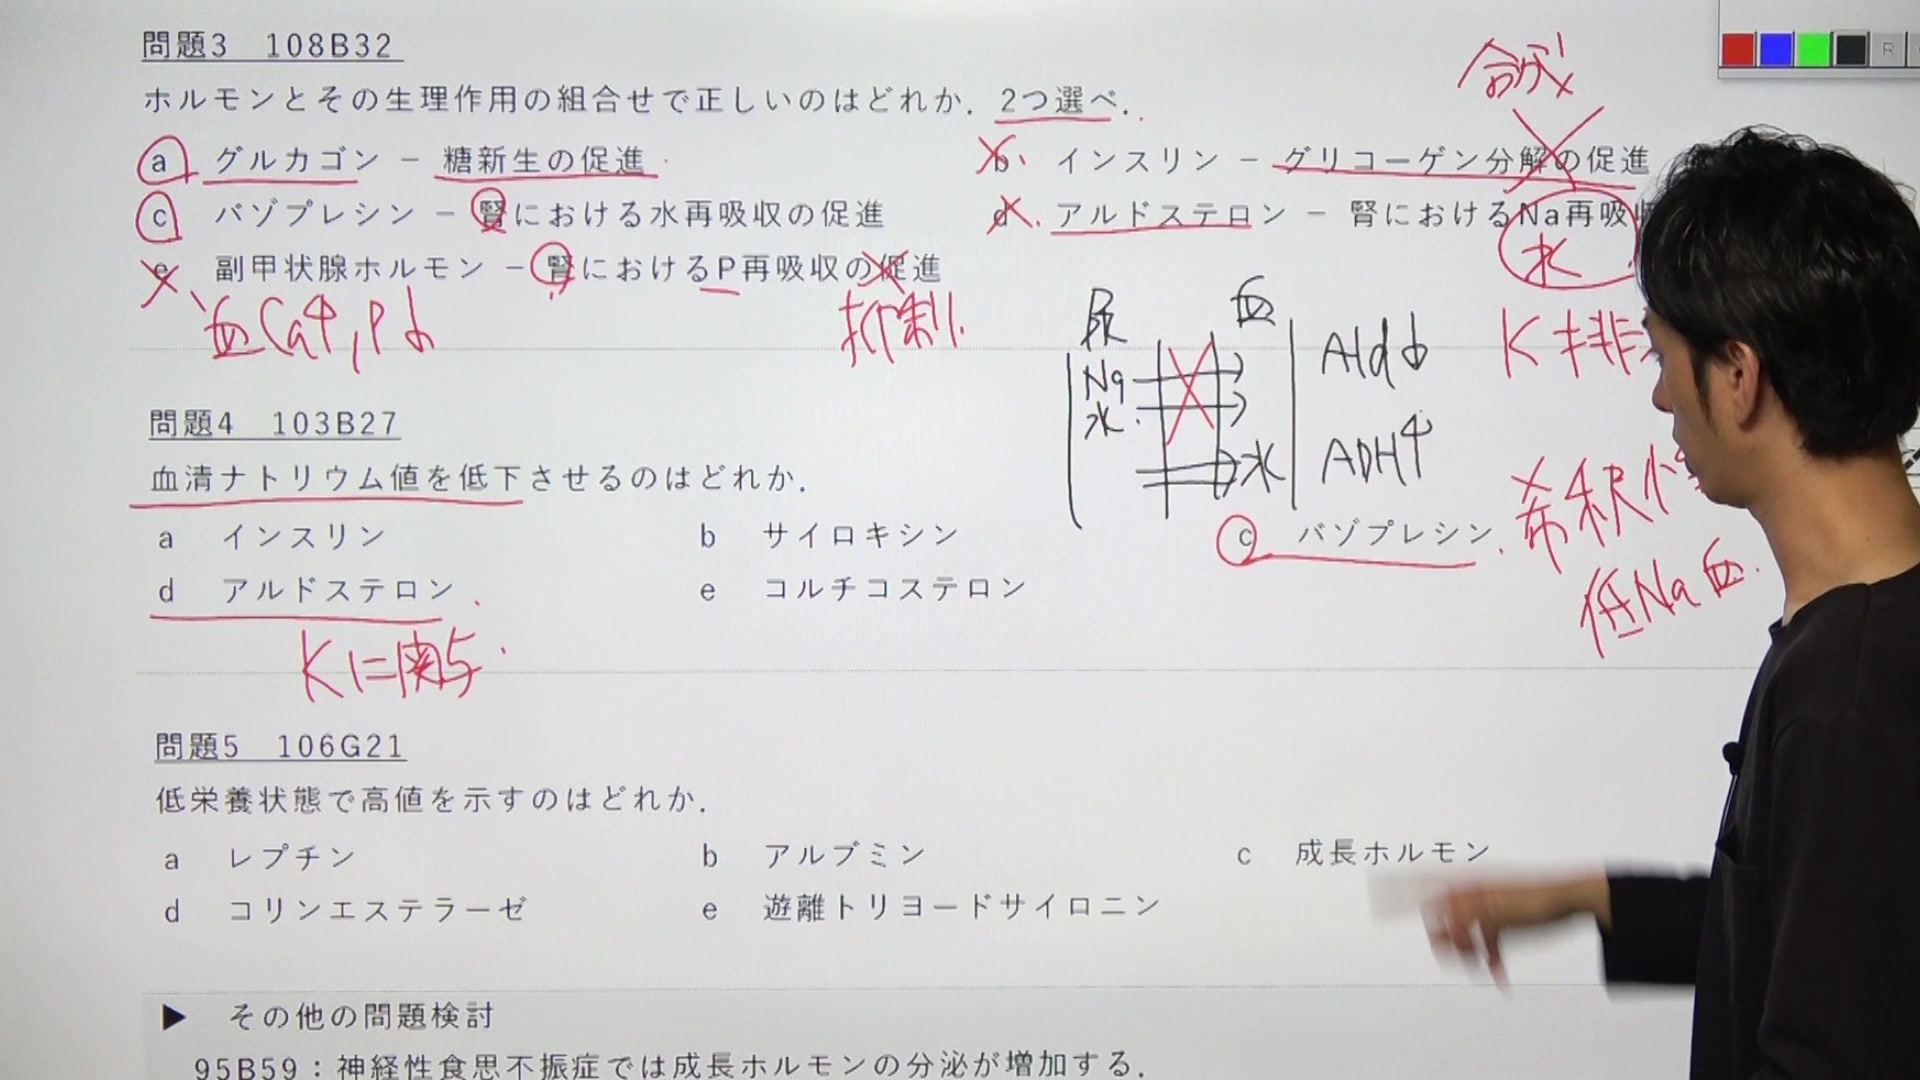 問題3 108B32
ホルモンとその生理作用の組合せで正しいのはどれか．2つ選べ．
合成
a グルカゴン － 糖新生の促進
b インスリン － グリコーゲン分解の促進
c バゾプレシン － 腎における水再吸収の促進
d アルドステロン － 腎におけるNa再吸収
水
e 副甲状腺ホルモン － 腎におけるP再吸収の促進
血Ca↑, P↓
抑制.
尿 血
Na
水
水
Ald↓
ADH↑
K排
問題4 103B27
血清ナトリウム値を低下させるのはどれか．
a インスリン
b サイロキシン
c バゾプレシン
希釈性
低Na血.
d アルドステロン
e コルチコステロン
Kに関与.
問題5 106G21
低栄養状態で高値を示すのはどれか．
a レプチン
b アルブミン
c 成長ホルモン
d コリンエステラーゼ
e 遊離トリヨードサイロニン
▶ その他の問題検討
95B59：神経性食思不振症では成長ホルモンの分泌が増加する．